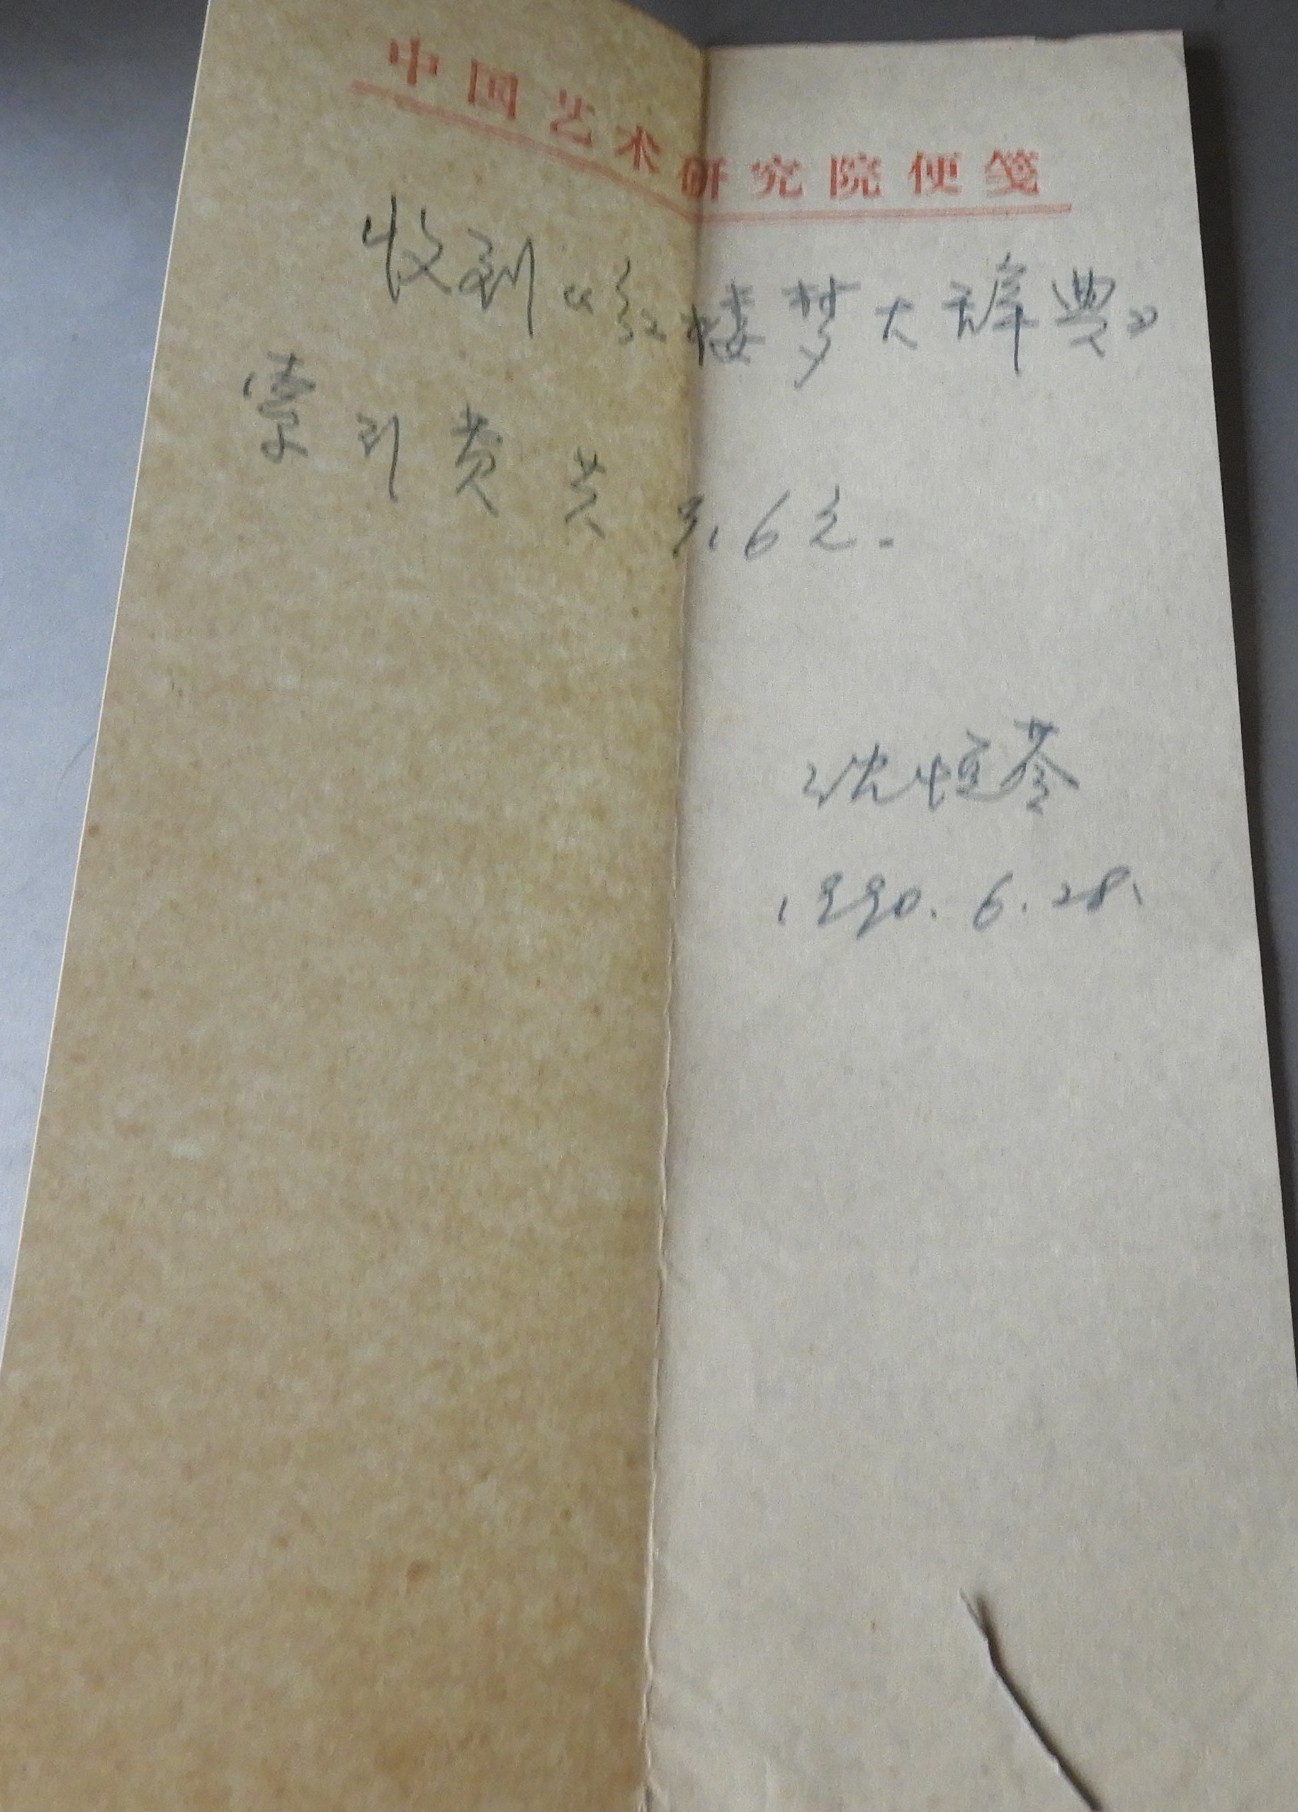 中国艺术研究院便笺
收到《红楼梦大辞典》
索引费共 元。
沈恒
1990.6.28.